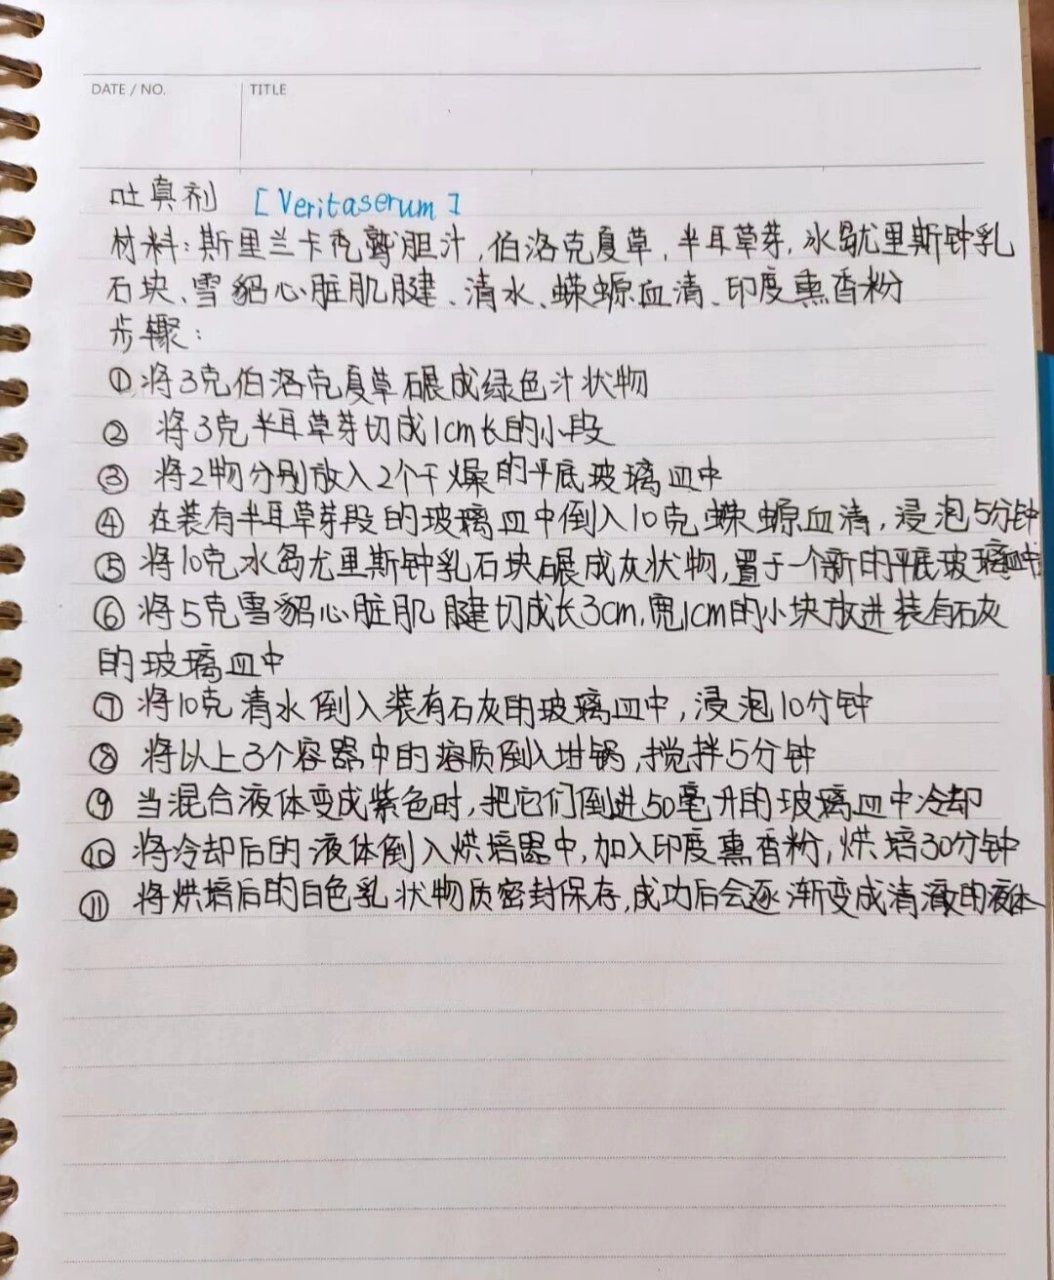 DATE / NO.
TITLE
吐真剂 [Veritaserum]
材料:斯里兰卡秃鹫胆汁,伯洛克夏草,半耳草芽,冰岛尤里斯钟乳
石块、雪貂心脏肌腱、清水、蝾螈血清、印度熏香粉
步骤:
①将3克伯洛克夏草碾成绿色汁状物
② 将3克半耳草芽切成1cm长的小段
③ 将2物分别放入2个干燥的平底玻璃皿中
④ 在装有半耳草芽段的玻璃皿中倒入10克蝾螈血清,浸泡5分钟
⑤ 将10克水岛尤里斯钟乳石块碾成灰状物,置于一个新的平底玻璃皿中
⑥ 将5克雪貂心脏肌腱切成长3cm,宽1cm的小块放进装有石灰
的玻璃皿中
⑦ 将10克清水倒入装有石灰的玻璃皿中,浸泡10分钟
⑧ 将以上3个容器中的溶质倒入坩锅,搅拌5分钟
⑨ 当混合液体变成紫色时,把它们倒进50毫升的玻璃皿中冷却
⑩ 将冷却后的液体倒入烘培器中,加入印度熏香粉,烘培30分钟
⑪ 将烘培后的白色乳状物质密封保存,成功后会逐渐变成清澈的液体